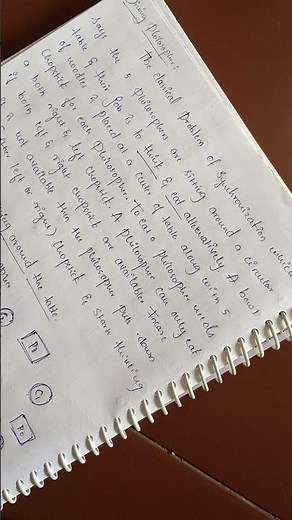 Dining Philosophers:
The classical Problem of Synchronization which
says the 5 Philosophers are sitting around a circular
table & their job is to think & eat alternatively. A bowl
of noodles is placed at a center of table along with 5
chopstick for each Philosophers. To eat a philosopher needs
a both right & left chopstick. A Philosopher can only eat
if both left & right chopstick are available. Incase
is not available then the philosopher put down
(left or right) chopstick & start thinking
around the table.
P1
P0